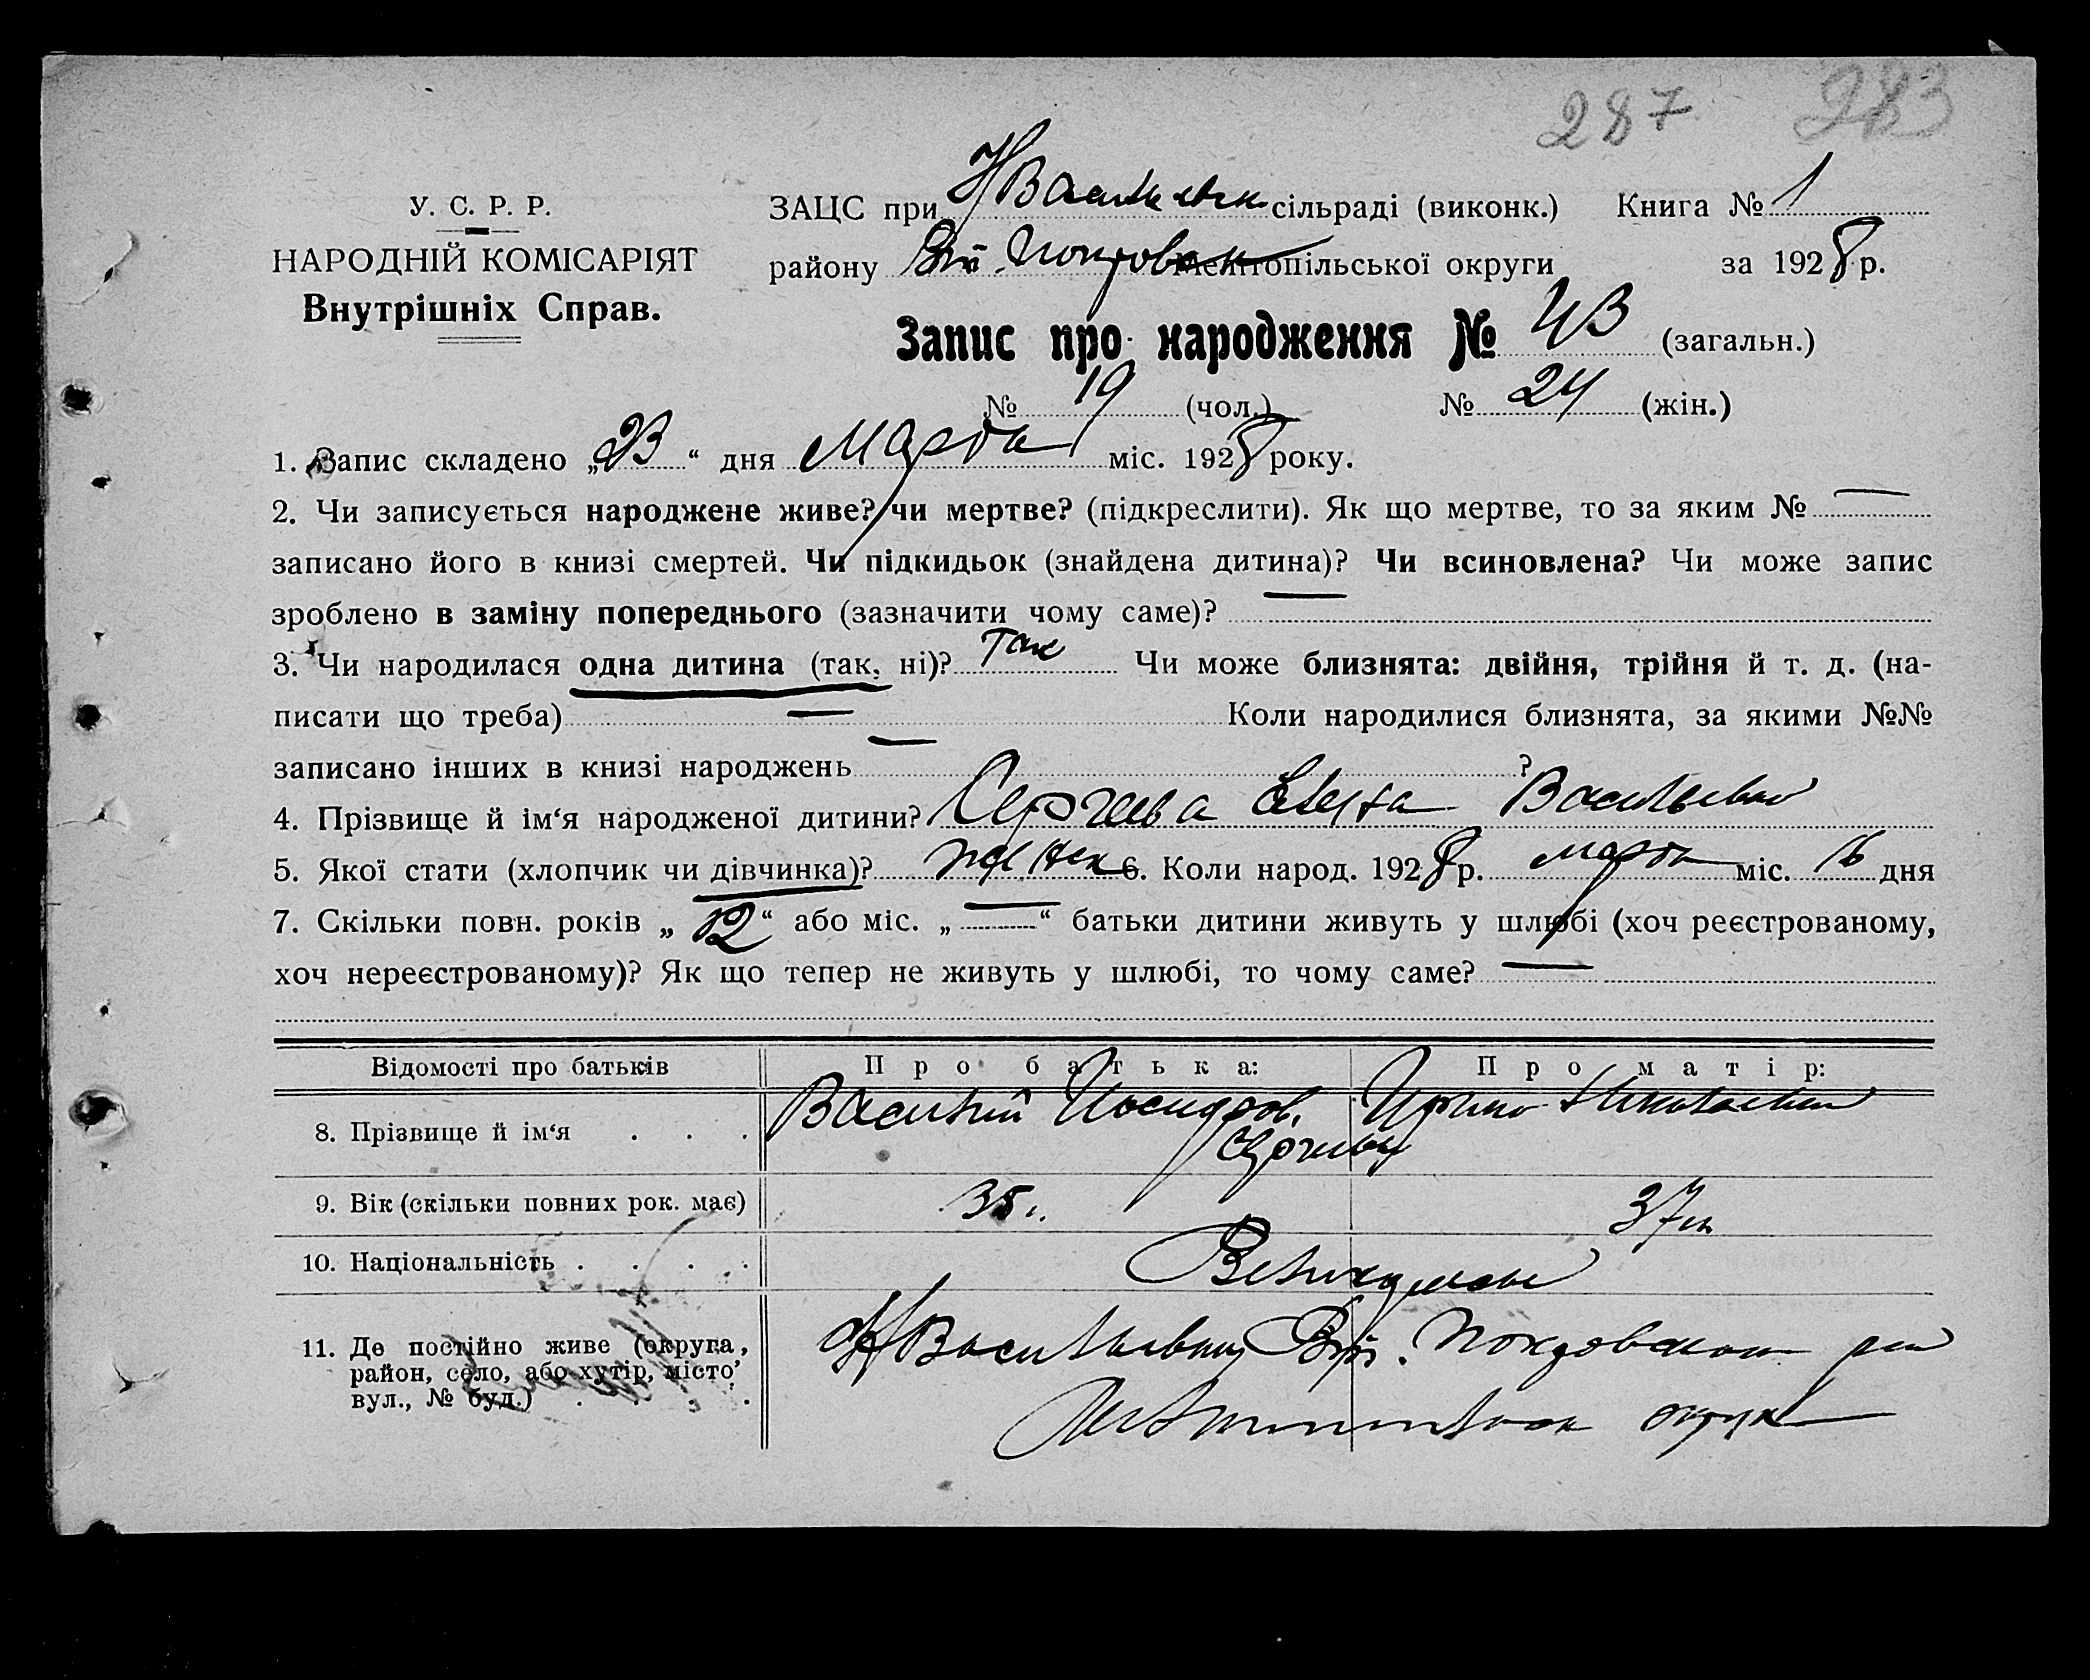 287 283
У. С. Р. Р.
НАРОДНІЙ КОМІСАРІЯТ
Внутрішніх Справ.
ЗАЦС при сільраді (виконк.) Книга № 1
району Мелітопільської округи за 1928 р.
Запис про народження № 43 (загальн.)
№ 19 (чол.) № 24 (жін.)
1. Запис складено „23“ дня Марта міс. 1928 року.
2. Чи записується народжене живе? чи мертве? (підкреслити). Як що мертве, то за яким № —
записано його в книзі смертей. Чи підкидьок (знайдена дитина)? Чи всиновлена? Чи може запис
зроблено в заміну попереднього (зазначити чому саме)? —
3. Чи народилася одна дитина (так, ні)? Так Чи може близнята: двійня, трійня й т. д. (на-
писати що треба) — Коли народилися близнята, за якими №№
записано інших в книзі народжень — ?
4. Прізвище й ім‘я народженої дитини? Сергеева Васильевна
5. Якої стати (хлопчик чи дівчинка)? 6. Коли народ. 1928 р. марта міс. 16 дня
7. Скільки повн. років „12“ або міс. „—“ батьки дитини живуть у шлюбі (хоч реєстрованому,
хоч нереєстрованому)? Як що тепер не живуть у шлюбі, то чому саме? —
Відомості про батьків Про батька: Про матір:
8. Прізвище й ім‘я . . . Василий Ирина Николаевна
Сергеевы
9. Вік (скільки повних рок. має) 35 37
10. Національність . . . .
11. Де постійно живе (округа,
район, село, або хутір, місто,
вул., № буд.) . . . .
Васильевка Покровского